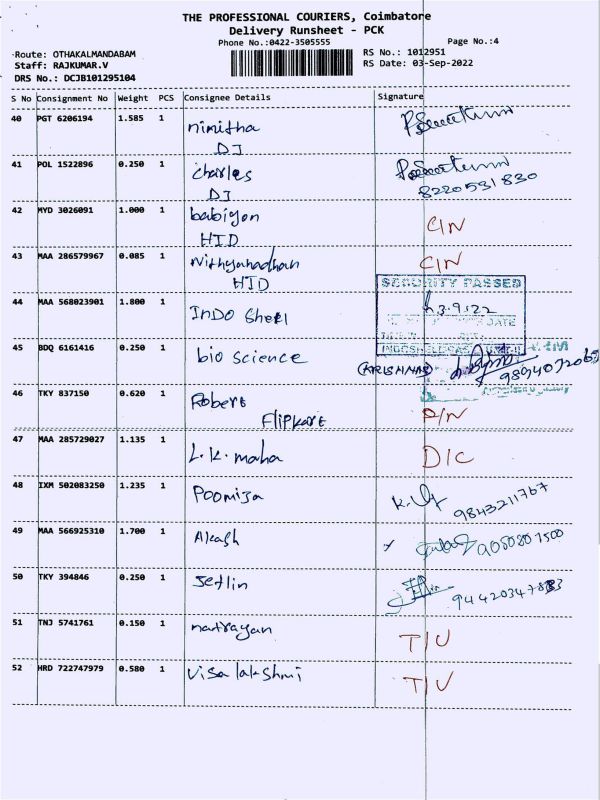 THE PROFESSIONAL COURIERS, Coimbatore
Delivery Runsheet - PCK
Phone No.:0422-3505555
Page No.:4
Route: OTHAKALMANDABAM
RS No.: 1012951
Staff: RAJKUMAR.V
RS Date: 03-Sep-2022
DRS No.: DCJB101295104
S No Consignment No Weight PCS Consignee Details Signature
40 PGT 6206194 1.585 1 nimitha
DJ
41 POL 1522896 0.250 1 charles
DJ 8220531830
42 MYD 3026091 1.000 1 babiyon C/N
HID
43 MAA 286579967 0.085 1 Nithyanadhan C/N
HID
SECURITY PASSED
44 MAA 568023901 1.800 1 INDO Shell
3.9.22
DATE
45 BDQ 6161416 0.250 1 bio science (KRISHNAS)
46 TKY 837150 0.620 1 Robert
Flipkart
47 MAA 285729027 1.135 1 L.K. maha D/C
48 IXM 502083250 1.235 1 Poomija 9843211767
49 MAA 566925310 1.700 1 Akash
50 TKY 394846 0.250 1 Jetlin
51 TNJ 5741761 0.150 1 natrayan T/U
52 HRD 722747979 0.580 1 Visalakshmi T/U